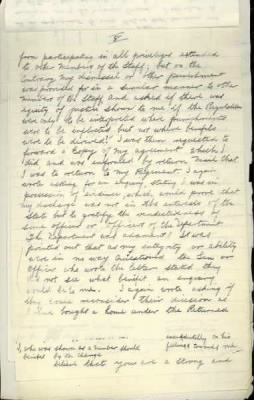 5
from participating in all privileges extended
to other members of the Staff; but on the
contrary my dismissal or other punishment
was provided for in a similar manner to other
members of the Staff and asked if there was
equity or justice shown to me if the Regulations
were only to be interpreted where punishments
were to be inflicted but not where benefits
were to be derived? I was then requested to
forward a copy of my agreement which I
did and was informed by return mail that
I was to return to my Regiment. I again
wrote asking for an enquiry stating I was in
possession of evidence which would prove that
my discharge was not in the interests of the
State but to gratify the vindictiveness of
some officer or officers of the Department
The Department was adamant! It was
pointed out that as my integrity or ability
were in no way questioned the Gen or
Officer who wrote the letter stated they
did not see what benefit an enquiry
would be to me. I again wrote asking if
they could reconsider their decision as
I had bought a home under the Returned
I, who was shown as a member should
benefit by the change
believe that you are a strong and